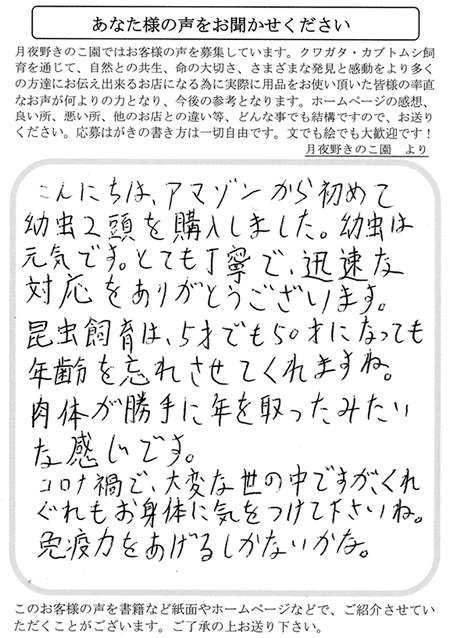 あなた様の声をお聞かせください
月夜野きのこ園ではお客様の声を募集しています。クワガタ・カブトムシ飼
育を通じて、自然との共生、命の大切さ、さまざまな発見と感動をより多く
の方達にお伝え出来るお店になる為に実際に用品をお使い頂いた皆様の率直
なお声が何よりの力となり、今後の参考となります。ホームページの感想、
良い所、悪い所、他のお店との違い等、どんな事でも結構ですので、お送り
ください。応募はがきの書き方は一切自由です。文でも絵でも大歓迎です！
月夜野きのこ園　より
こんにちは、アマゾンから初めて
幼虫2頭を購入しました。幼虫は
元気です。とても丁寧で、迅速な
対応をありがとうございます。
昆虫飼育は、5才でも50才になっても
年齢を忘れさせてくれますね。
肉体が勝手に年を取ったみたい
な感じです。
コロナ禍で、大変な世の中ですが、くれ
ぐれもお身体に気をつけて下さいね。
免疫力をあげるしかないかな。
このお客様の声を書籍など紙面やホームページなどで、ご紹介させてい
ただくことがございます。ご了承の上お送り下さい。